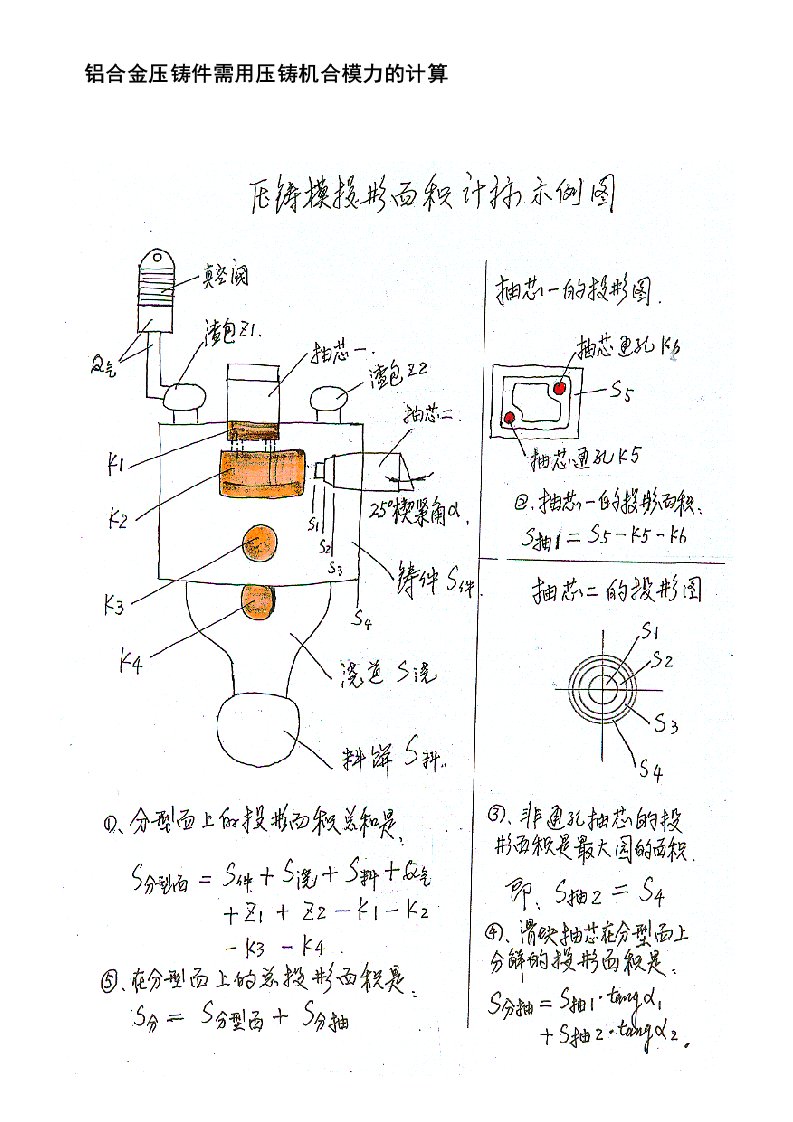 铝合金压铸件需用压铸机合模力的计算
压铸模投形面积计标示例图
真空阀
渣包Z1.
Q气
抽芯一.
渣包Z2
抽芯二.
K1
K2
25°楔紧角α.
S1
S2
S3
S4
K3
铸件S件.
K4
浇道 S浇
料饼 S料.
①、分型面上的投形面积总和是:
S分型面 = S件 + S浇 + S料 + Q气
+ Z1 + Z2 - K1 - K2
- K3 - K4 .
⑤、在分型面上的总投形面积是:
S分 = S分型面 + S分抽
抽芯一的投形图.
抽芯通孔K6
S5
抽芯通孔K5
②、抽芯一的投形面积:
S抽1 = S5 - K5 - K6
抽芯二的投形图
S1
S2
S3
S4
③、非通孔抽芯的投
形面积是最大园的面积.
即、S抽2 = S4
④、滑块抽芯在分型面上
分解的投形面积是:
S分抽 = S抽1·tangα1
+ S抽2·tangα2 .